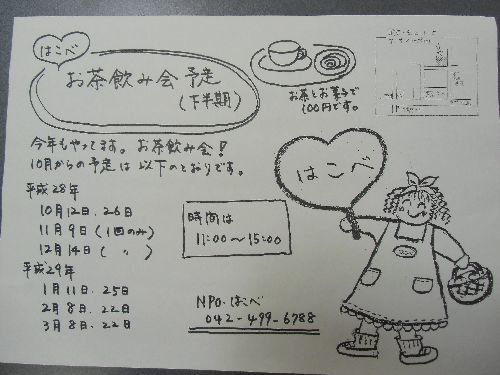 はこべ
お茶飲み会 予定
(下半期)
お茶とお菓子で
100円です。
今年もやってます。お茶飲み会!
10月からの予定は以下のとおりです。
平成28年
10月12日、26日
11月9日(1回のみ)
12月14日( 〃 )
平成29年
1月11日、25日
2月8日、22日
3月8日、22日
時間は
11:00〜15:00
はこべ
NPO.はこべ
042-499-6788